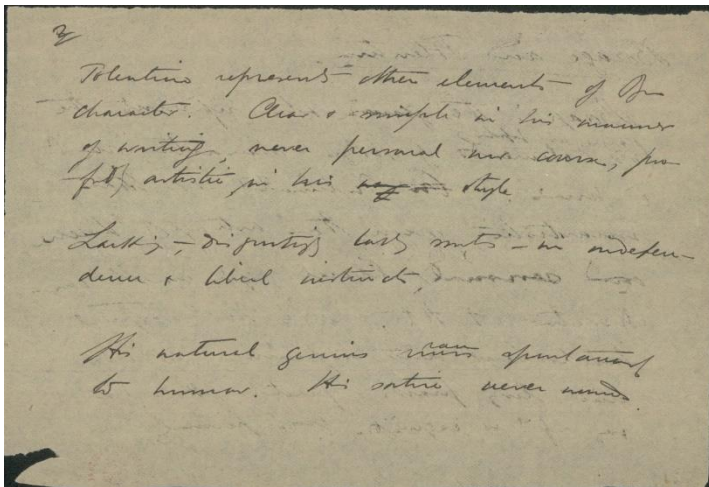 2
Tolentino represents other elements of
character. Clear & simple in his manner
of writing, never personal nor coarse, pro
artistic in his style
Lacking - disgustingly - in indepen-
dence & liberal instincts,
His natural genius ran spontaneously
to humor. His satire never wounds.